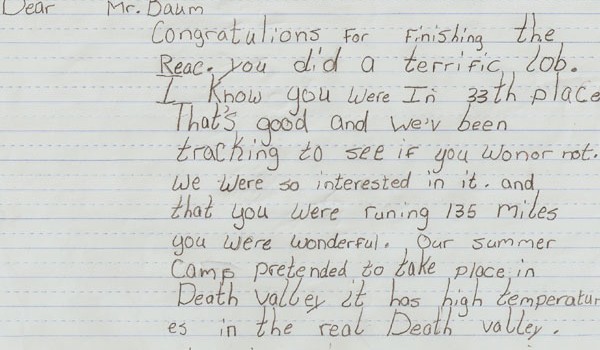 Dear Mr. Baum
Congratulions for finishing the
Reac. you did a terrific Job.
I know you were In 33th place
That's good and we'v been
tracking to see if you won or not.
we were so interested in it. and
that you were runing 135 miles
you were wonderful. Our summer
Camp pretended to take place in
Death valley it has high temperatur
es in the real Death valley.